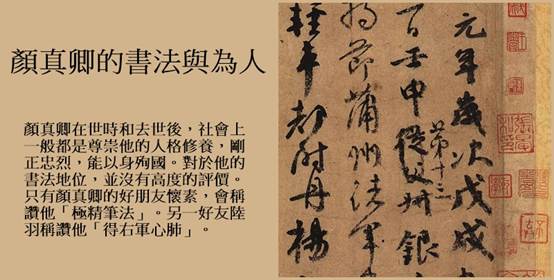 顏真卿的書法與為人
顏真卿在世時和去世後，社會上
一般都是尊崇他的人格修養，剛
正忠烈，能以身殉國。對於他的
書法地位，並沒有高度的評價。
只有顏真卿的好朋友懷素，會稱
讚他「極精筆法」。另一好友陸
羽稱讚他「得右軍心肺」。
元年歲次戊戌
日壬申
第十三
從父叔銀
持節蒲州諸軍
輕車都尉丹楊